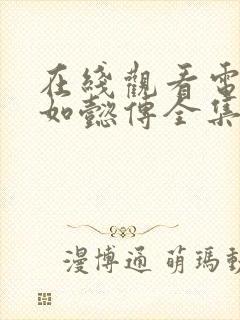 在綫觀看電
如懿傳全集
漫博通 萌瑪動